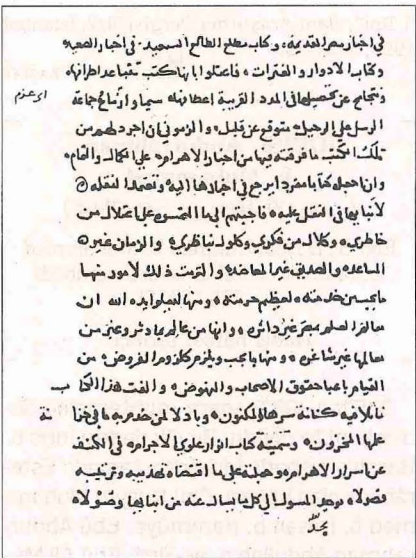 في اخبار مصر القديمة، وكتاب مطلع الطالع السعيد، في اخبار الصعيد،
وكتاب الادوار والفترات، فاعتلوا بانها كتب تتباعد اطرافها،
وتحتاج عن تحصيلها في المدد القريبة اعطافها، سيما وازماع جماعة
الرسل على الرحيل، متوقع عن قليل، والزموني ان اجرد لهم من
تلك الكتب ما فرقته فيها من اخبار الاهرام، على الكمال والتمام،
وان اجعله كتابا مفردا يرجع في اخبارها اليه، وتصمد النقلة
لانبائها في النقل عليه، فاجبتهم الى ما التمسوه على اعتلال من
خاطري، وكلال من فكري وكلول نباظري، والزمان غير
المساعد، والصديق غير المعاضد، والتزمت ذلك لامور منها
ما يجب من خدمته، وتعظيم حرمته، ومنها ليعلم ايده الله ان
معالم العلم بمصر غير داثره، وانها من عالم بها وثر وعنبر من
معالمها غير شاغره، ومنها ما يجب ويلزم كلزوم الفروض، من
القيام باعبا حقوق الاصحاب والنهوض، والفت هذا الكتاب
علها المخزون، وسميته كتاب انوار علوي الاجرام، في الكشف
عن اسرار الاهرام، وجعلته على ما اقتضاه تهذيبه وترتيبه
فصولا، وجعل